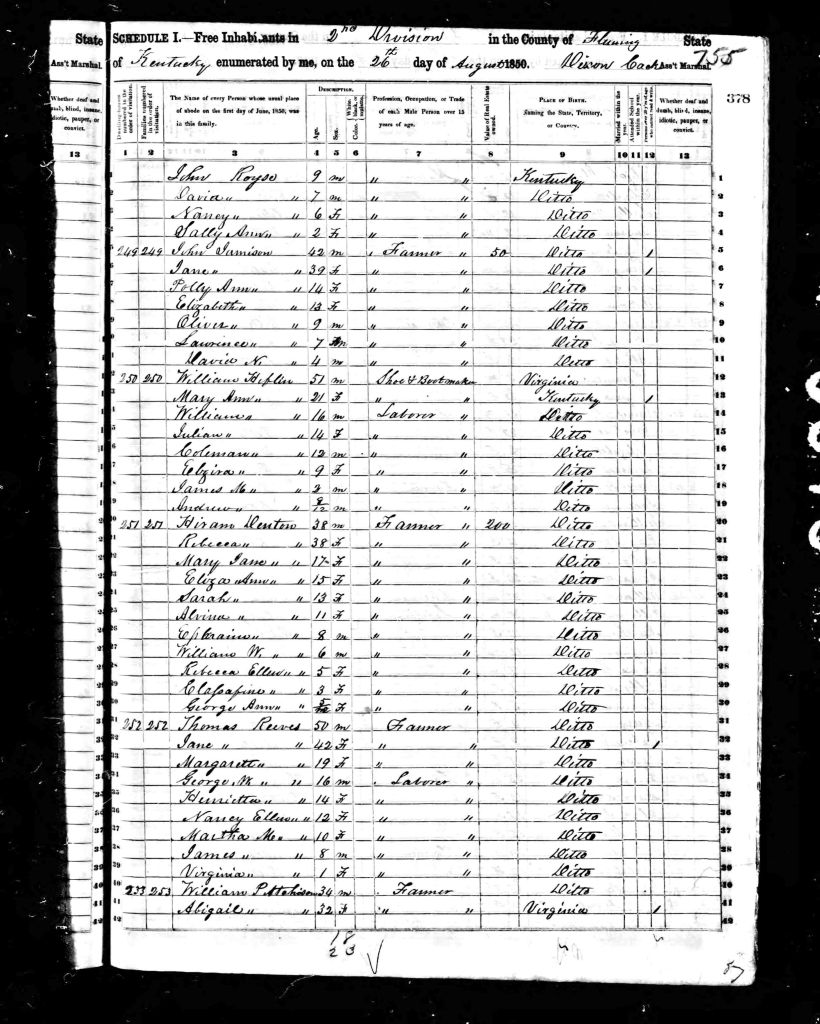 State SCHEDULE I.—Free Inhabitants in 2nd Division in the County of Fleming State
Ass't Marshal. of Kentucky enumerated by me, on the 26th day of August 1850. Dixon Ass't Marshal. 755
378
Whether deaf and dumb, blind, insane, idiotic, pauper, or convict.
Dwelling-houses numbered in the order of visitation.
Families numbered in the order of visitation.
The Name of every Person whose usual place of abode on the first day of June, 1850, was in this family.
DESCRIPTION.
Age.
Sex.
Color, White, black, or mulatto.
Profession, Occupation, or Trade of each Male Person over 15 years of age.
Value of Real Estate owned.
PLACE OF BIRTH. Naming the State, Territory, or Country.
Married within the year.
Attended School within the year.
Whether deaf and dumb, blind, insane, idiotic, pauper, or convict.
13 1 2 3 4 5 6 7 8 9 10 11 12 13
John Royse 9 m " " Kentucky 1
David " " 7 m " " Ditto 2
Nancy " " 6 F " " Ditto 3
Sally Ann " " 2 F " " Ditto 4
249 249 John Jamison 42 m Farmer " 50 Ditto 1 5
Jane " " 39 F " " Ditto 1 6
Polly Ann " " 14 F " " Ditto 7
Elizabeth " " 13 F " " Ditto 8
Oliver " " 9 m " " Ditto 9
Lawrence " " 7 m " " Ditto 10
David N. " 4 m " " Ditto 11
250 250 William Heflin 51 m Shoe & Bootmaker Virginia 12
Mary Ann " " 21 F " " Kentucky 1 13
William " " 16 m Laborer " Ditto 14
Julian " " 14 F " " Ditto 15
Coleman " " 12 m " " Ditto 16
" " 9 F " " Ditto 17
James M. " " 3 m " " Ditto 18
Andrew " " 8/12 m " " Ditto 19
251 251 Hiram Denton 38 m Farmer " 200 Ditto 20
Rebecca " " 38 F " " Ditto 21
Mary Jane " " 17 F " " Ditto 22
Eliza Ann " " 15 F " " Ditto 23
Sarah " " 13 F " " Ditto 24
Alvina " " 11 F " " Ditto 25
Ephraim " " 8 m " " Ditto 26
William W. " " 6 m " " Ditto 27
Rebecca Ellen " " 5 F " " Ditto 28
" " 3 F " " Ditto 29
George Ann " " F " " Ditto 30
252 252 Thomas Reeves 50 m Farmer Ditto 31
Jane " " 42 F " " Ditto 1 32
Margarett " " 19 F " " Ditto 33
George " " 16 m Laborer " Ditto 34
Henrietta " " 14 F " " Ditto 35
Nancy Ellen " " 12 F " " Ditto 36
Martha M. " " 10 F " " Ditto 37
James " " 8 m " " Ditto 38
Virginia " " 1 F " " Ditto 39
253 253 William P 34 m Farmer Ditto 40
Abigail " " 32 F " " Virginia 1 41
42
18
23